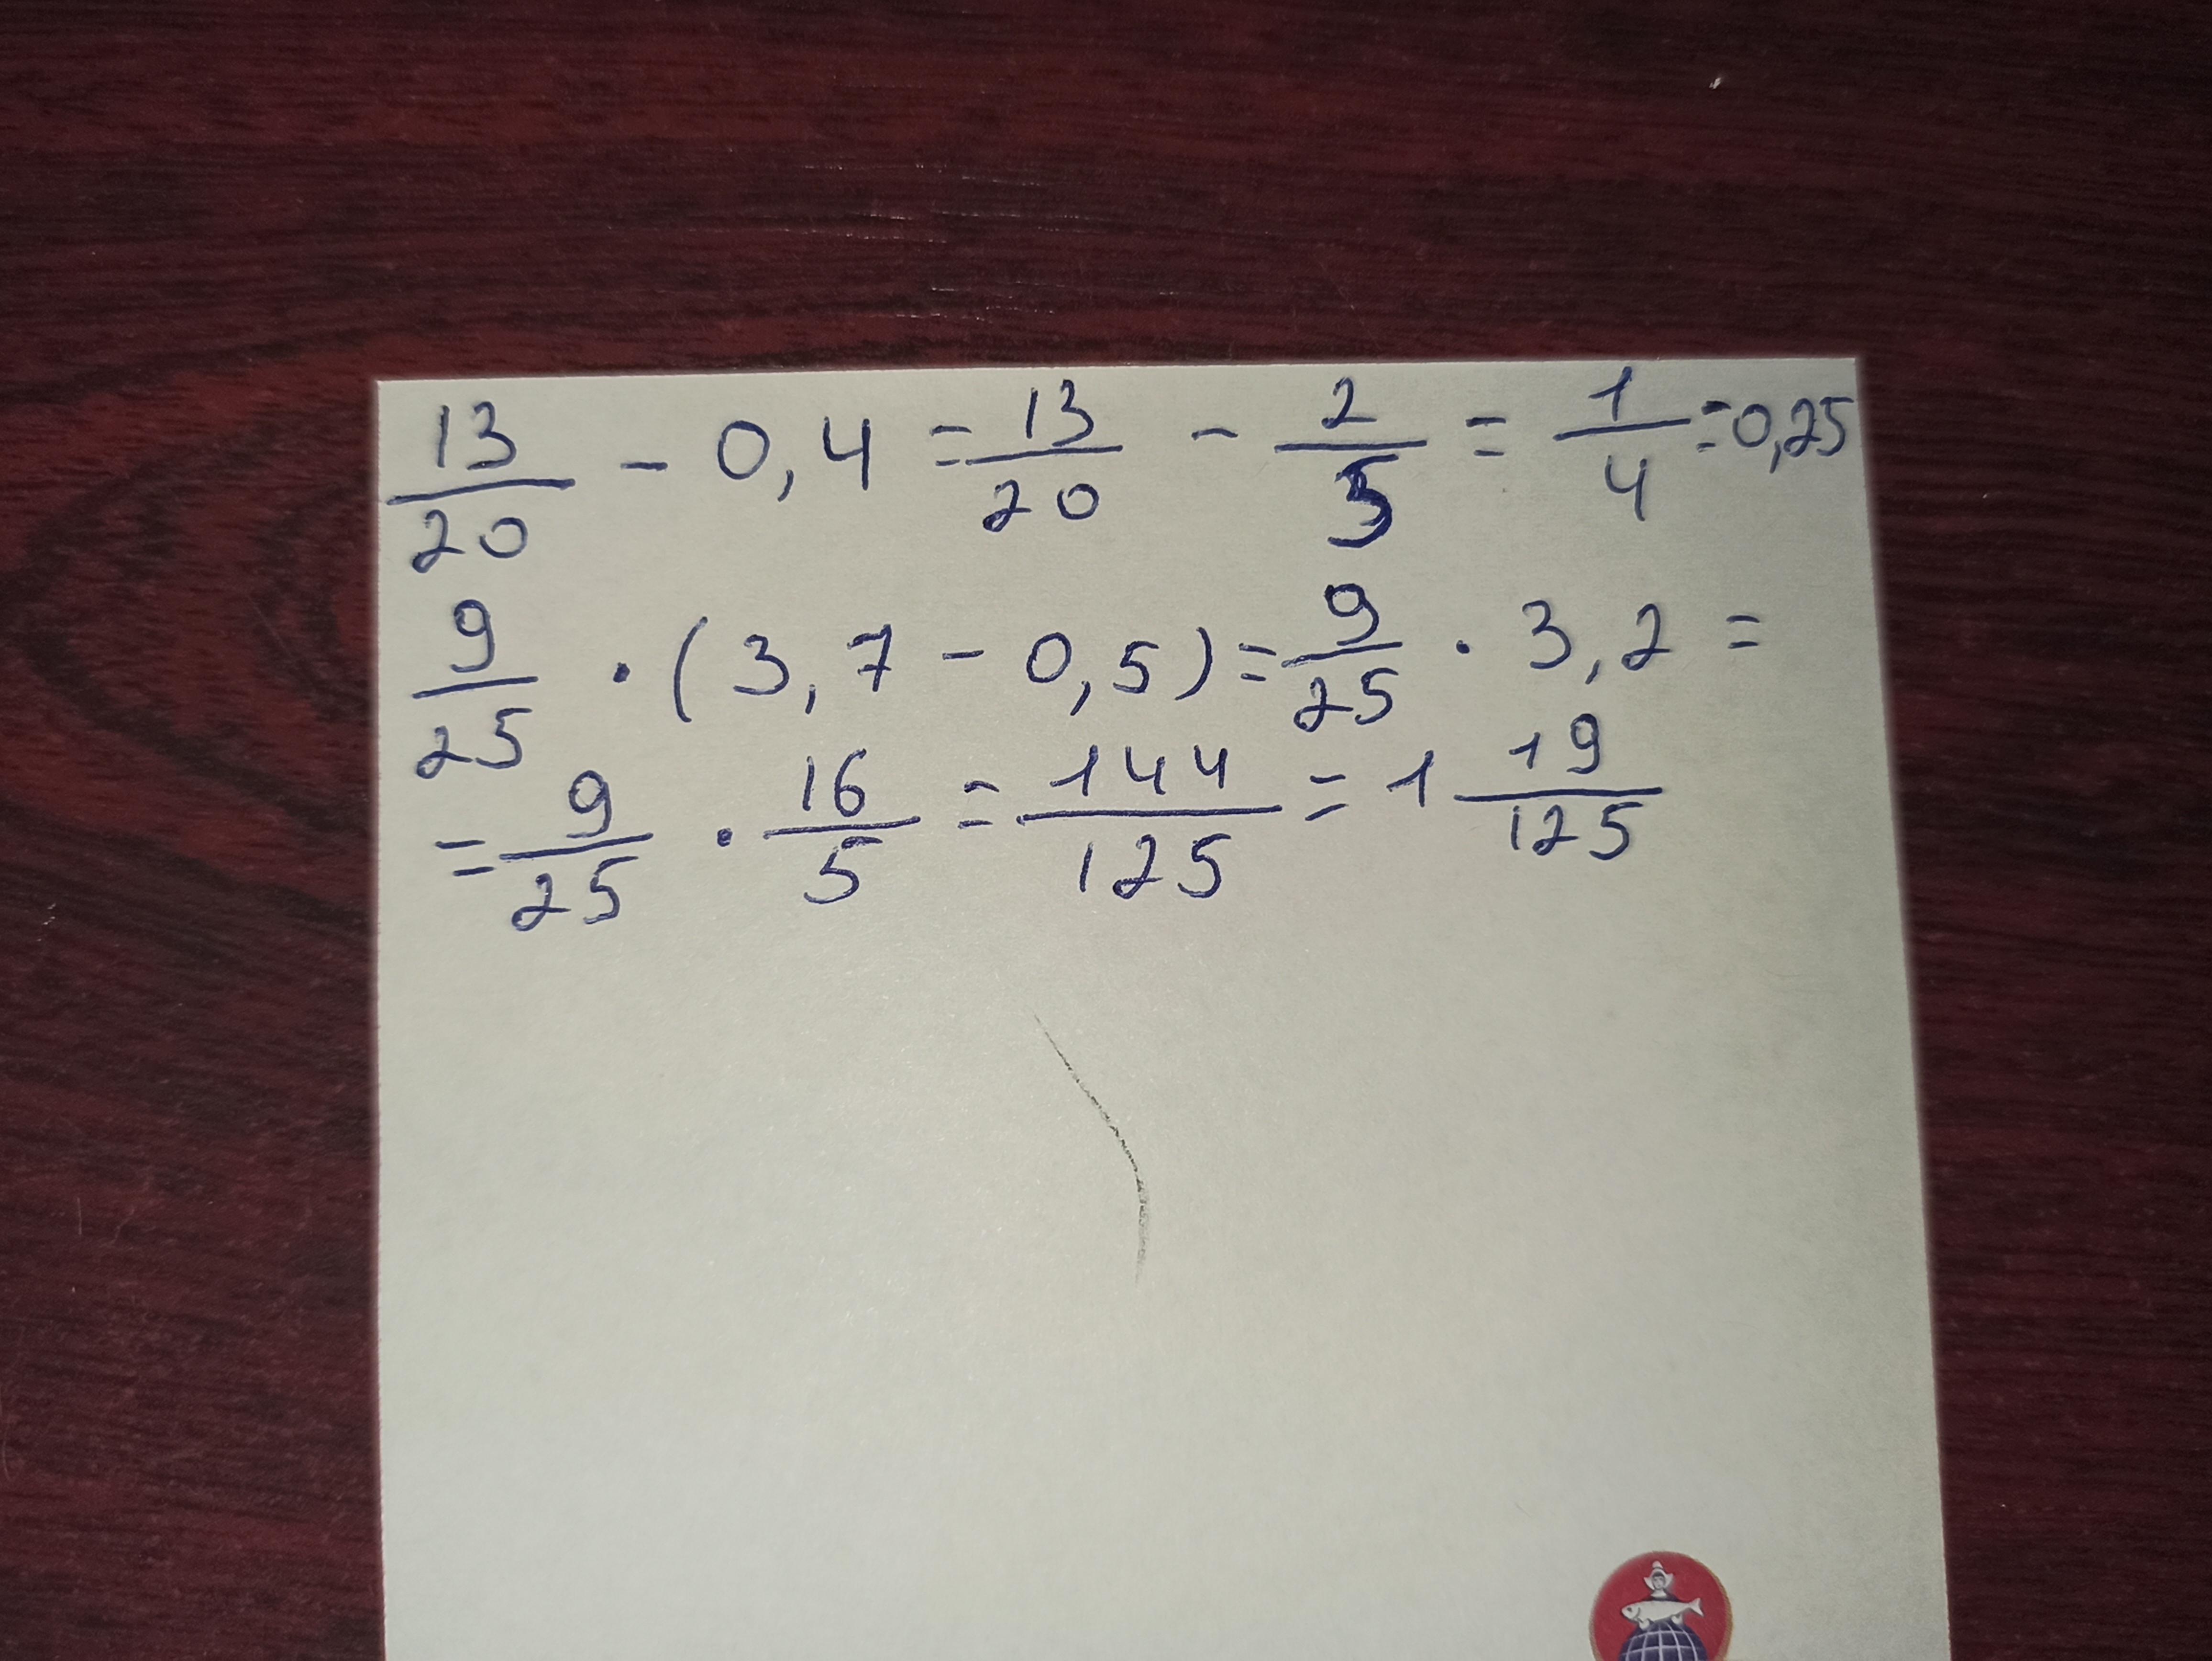 13/20 - 0,4 = 13/20 - 2/5 = 1/4 = 0,25
9/25 · (3,7 - 0,5) = 9/25 · 3,2 =
= 9/25 · 16/5 = 144/125 = 1 19/125